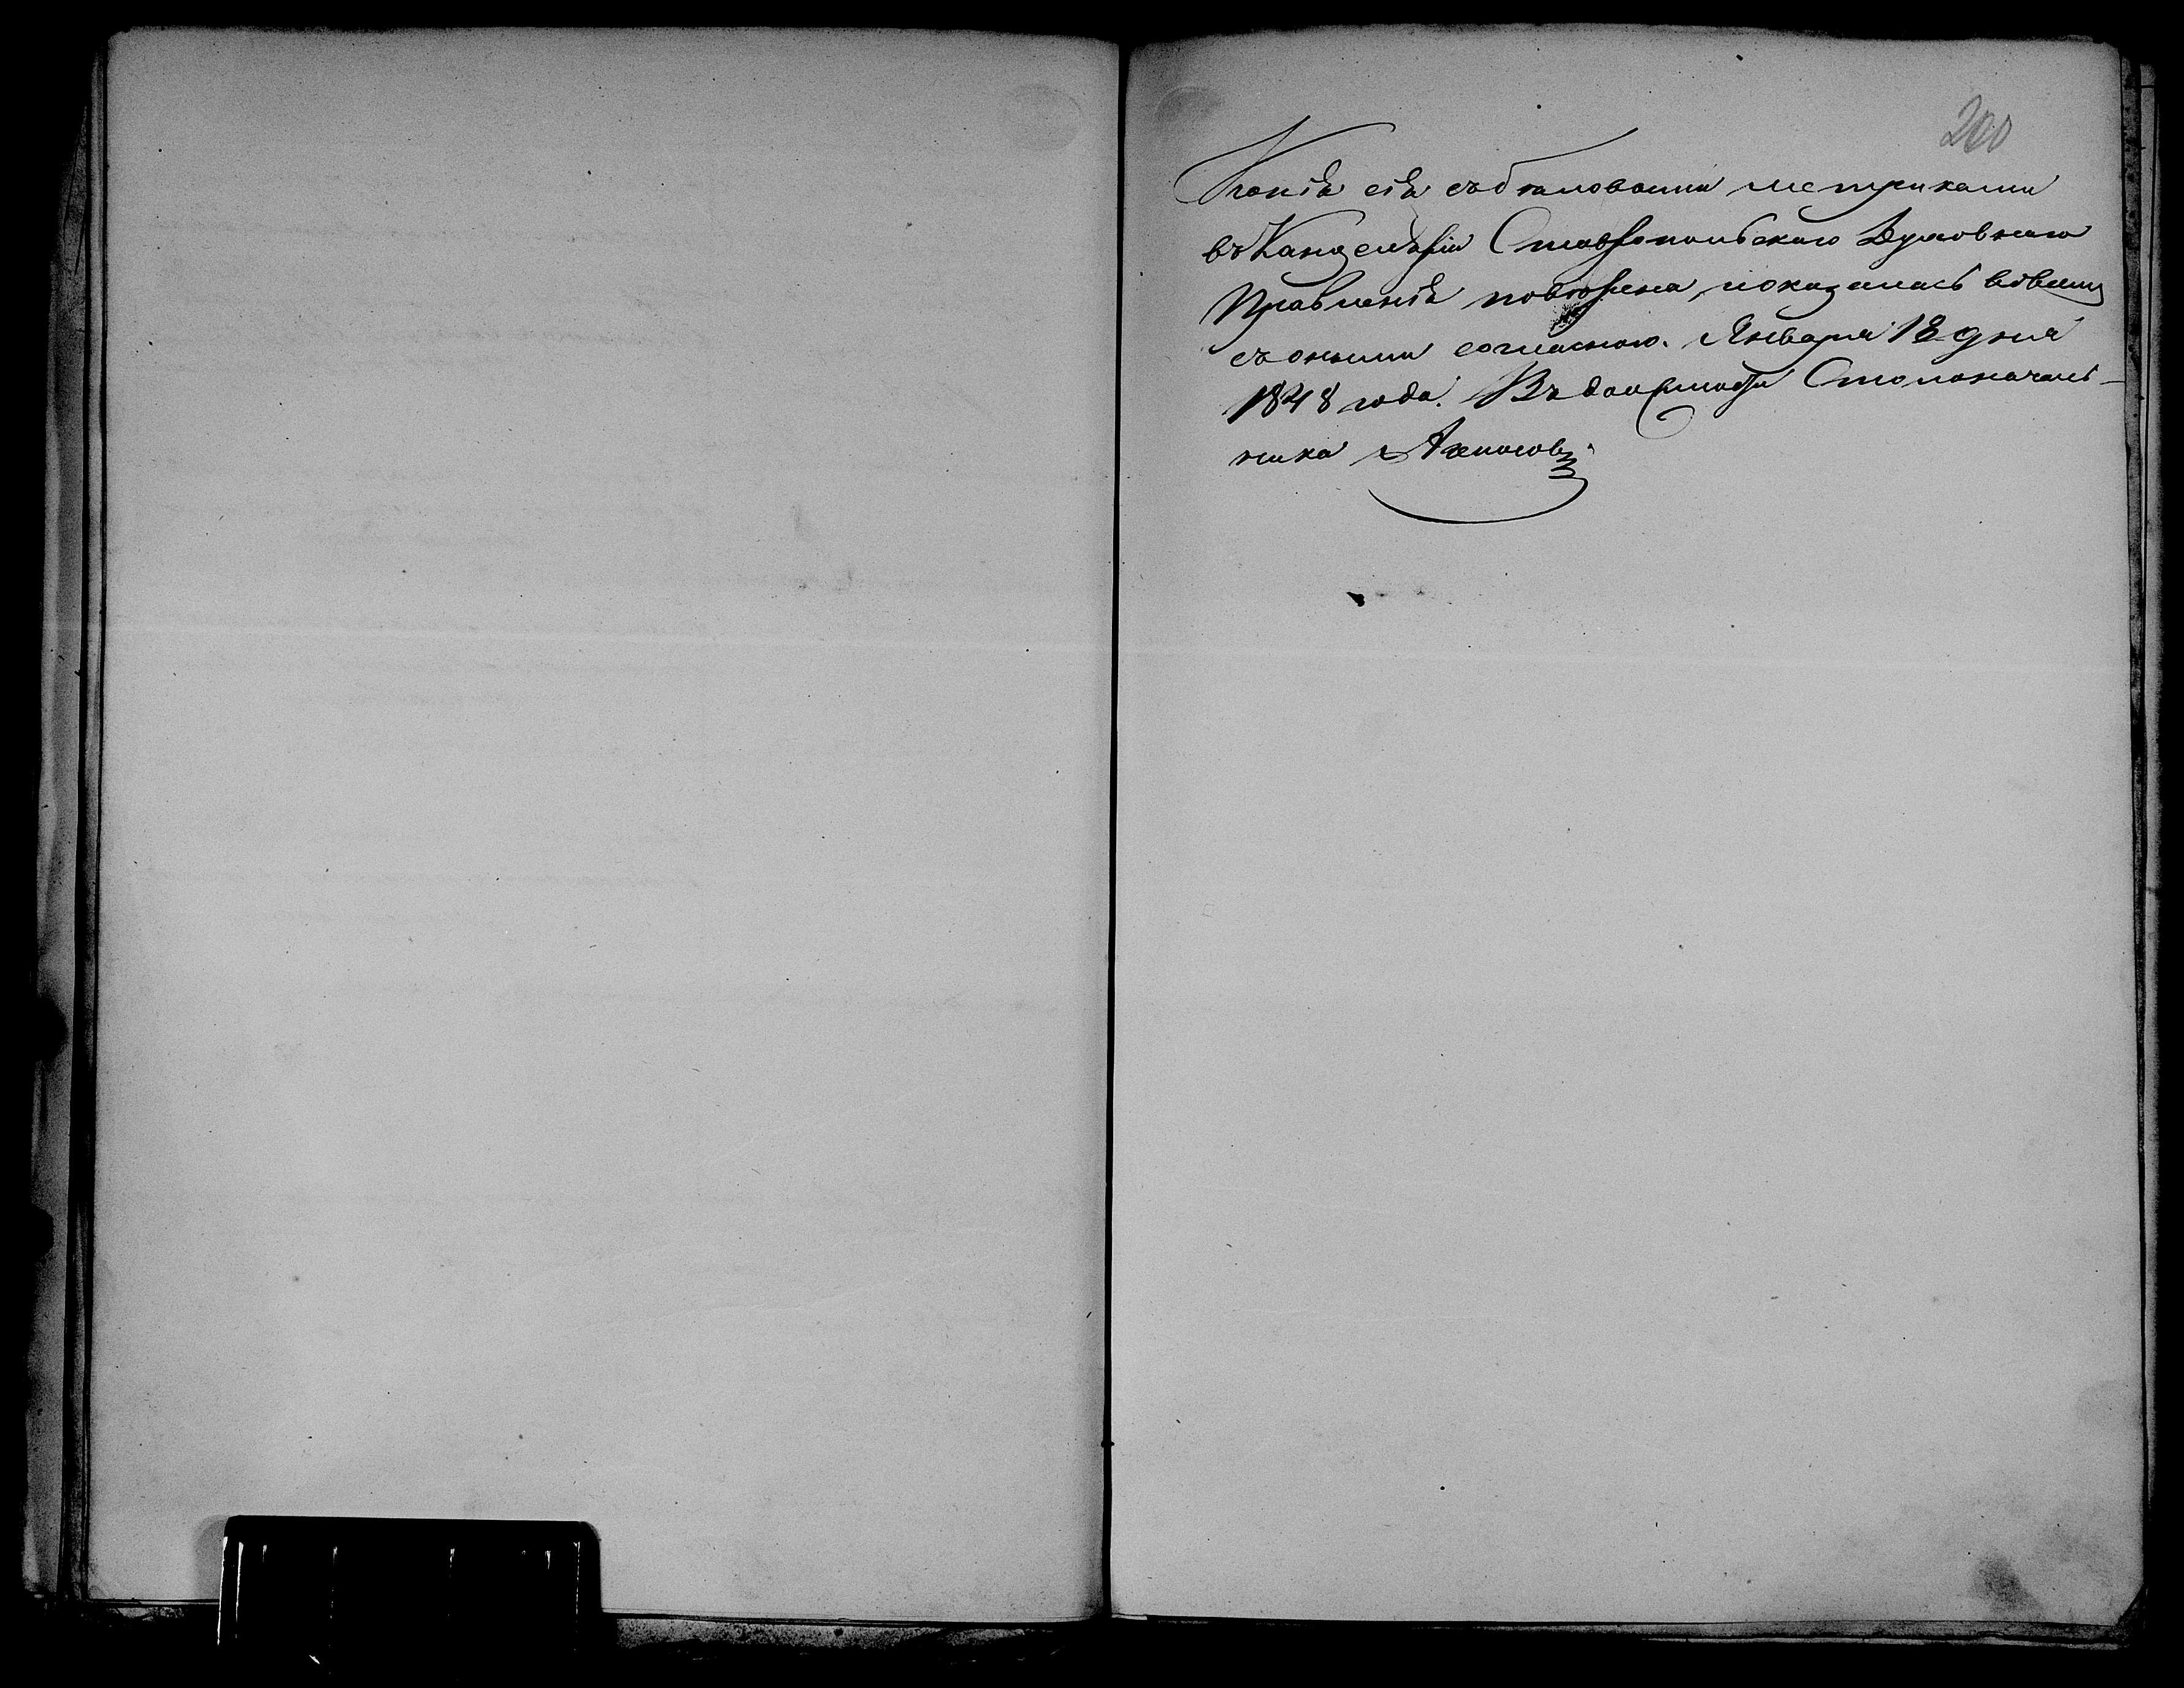 200
Копія сія съ бѣловыми метриками
въ Канцеляріи Ставропольскаго Духовнаго
Правленія повѣрена, и оказалась во всемъ
съ оными согласною. Января 18 дня
1848 года. Въ должности Столоначаль-
ника